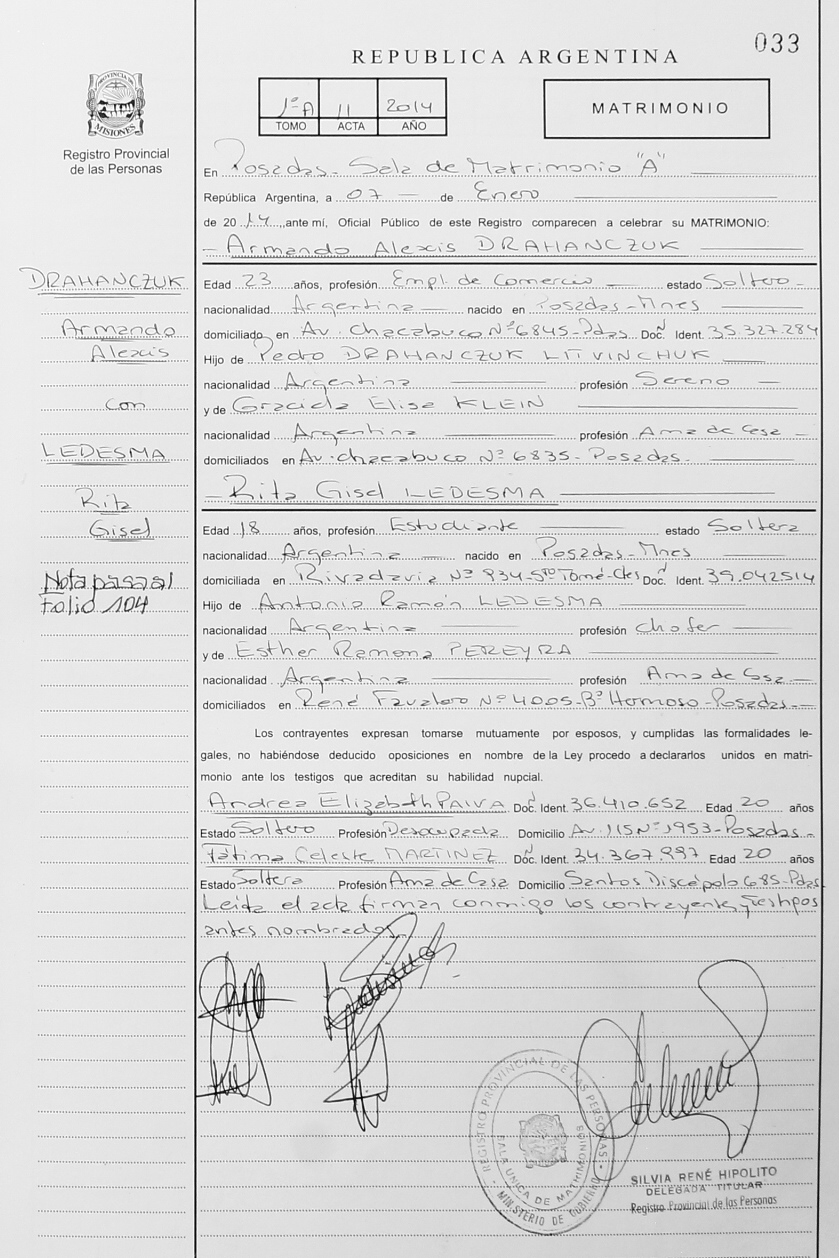 033
REPUBLICA ARGENTINA
1ºA 11 2014
TOMO ACTA AÑO
MATRIMONIO
PROVINCIA DE MISIONES
Registro Provincial
de las Personas
En Posadas - Sala de Matrimonio "A"
República Argentina, a 07 de Enero
de 20 14, ante mí, Oficial Público de este Registro comparecen a celebrar su MATRIMONIO:
- Armando Alexis DRAHANCZUK
DRAHANCZUK
Armando
Alexis
con
LEDESMA
Rita
Gisel
Nota pasa al
Folio 104
Edad 23 años, profesión Empl. de Comercio estado Soltero -
nacionalidad Argentina nacido en Posadas - Mnes
domiciliado en Av. Chacabuco Nº 6845 - Pdas Doc. Ident. 35.327.284
Hijo de Pedro DRAHANCZUK LITVINCHUK
nacionalidad Argentina profesión Sereno -
y de Graciela Elisa KLEIN
nacionalidad Argentina profesión Ama de Casa -
domiciliados en Av. Chacabuco Nº 6835 - Posadas -
- Rita Gisel LEDESMA
Edad 18 años, profesión Estudiante estado Soltera
nacionalidad Argentina nacido en Posadas - Mnes
domiciliada en Rivadavia Nº 934 - Sto Tomé - Ctes Doc. Ident. 39.042514
Hijo de Antonio Ramón LEDESMA
nacionalidad Argentina profesión Chofer
y de Esther Ramona PEREYRA
nacionalidad Argentina profesión Ama de Casa -
domiciliados en René Favaloro Nº 4005 - Bº Hermoso - Posadas -
Los contrayentes expresan tomarse mutuamente por esposos, y cumplidas las formalidades le-
gales, no habiéndose deducido oposiciones en nombre de la Ley procedo a declararlos unidos en matri-
monio ante los testigos que acreditan su habilidad nupcial.
Andrea Elizabeth PAIVA Doc. Ident. 36.410.652 Edad 20 años
Estado Soltero Profesión Desocupada Domicilio Av. 115 Nº 1953 - Posadas -
Fátima Celeste MARTINEZ Doc. Ident. 34.367.997 Edad 20 años
Estado Soltera Profesión Ama de Casa Domicilio Santos Discépolo 685 - Pdas
Leida el acta firman conmigo los contrayentes y testigos
antes nombrados
REGISTRO PROVINCIAL DE LAS PERSONAS
SALA UNICA DE MATRIMONIOS
MINISTERIO DE GOBIERNO
SILVIA RENÉ HIPOLITO
DELEGADA TITULAR
Registro Provincial de las Personas